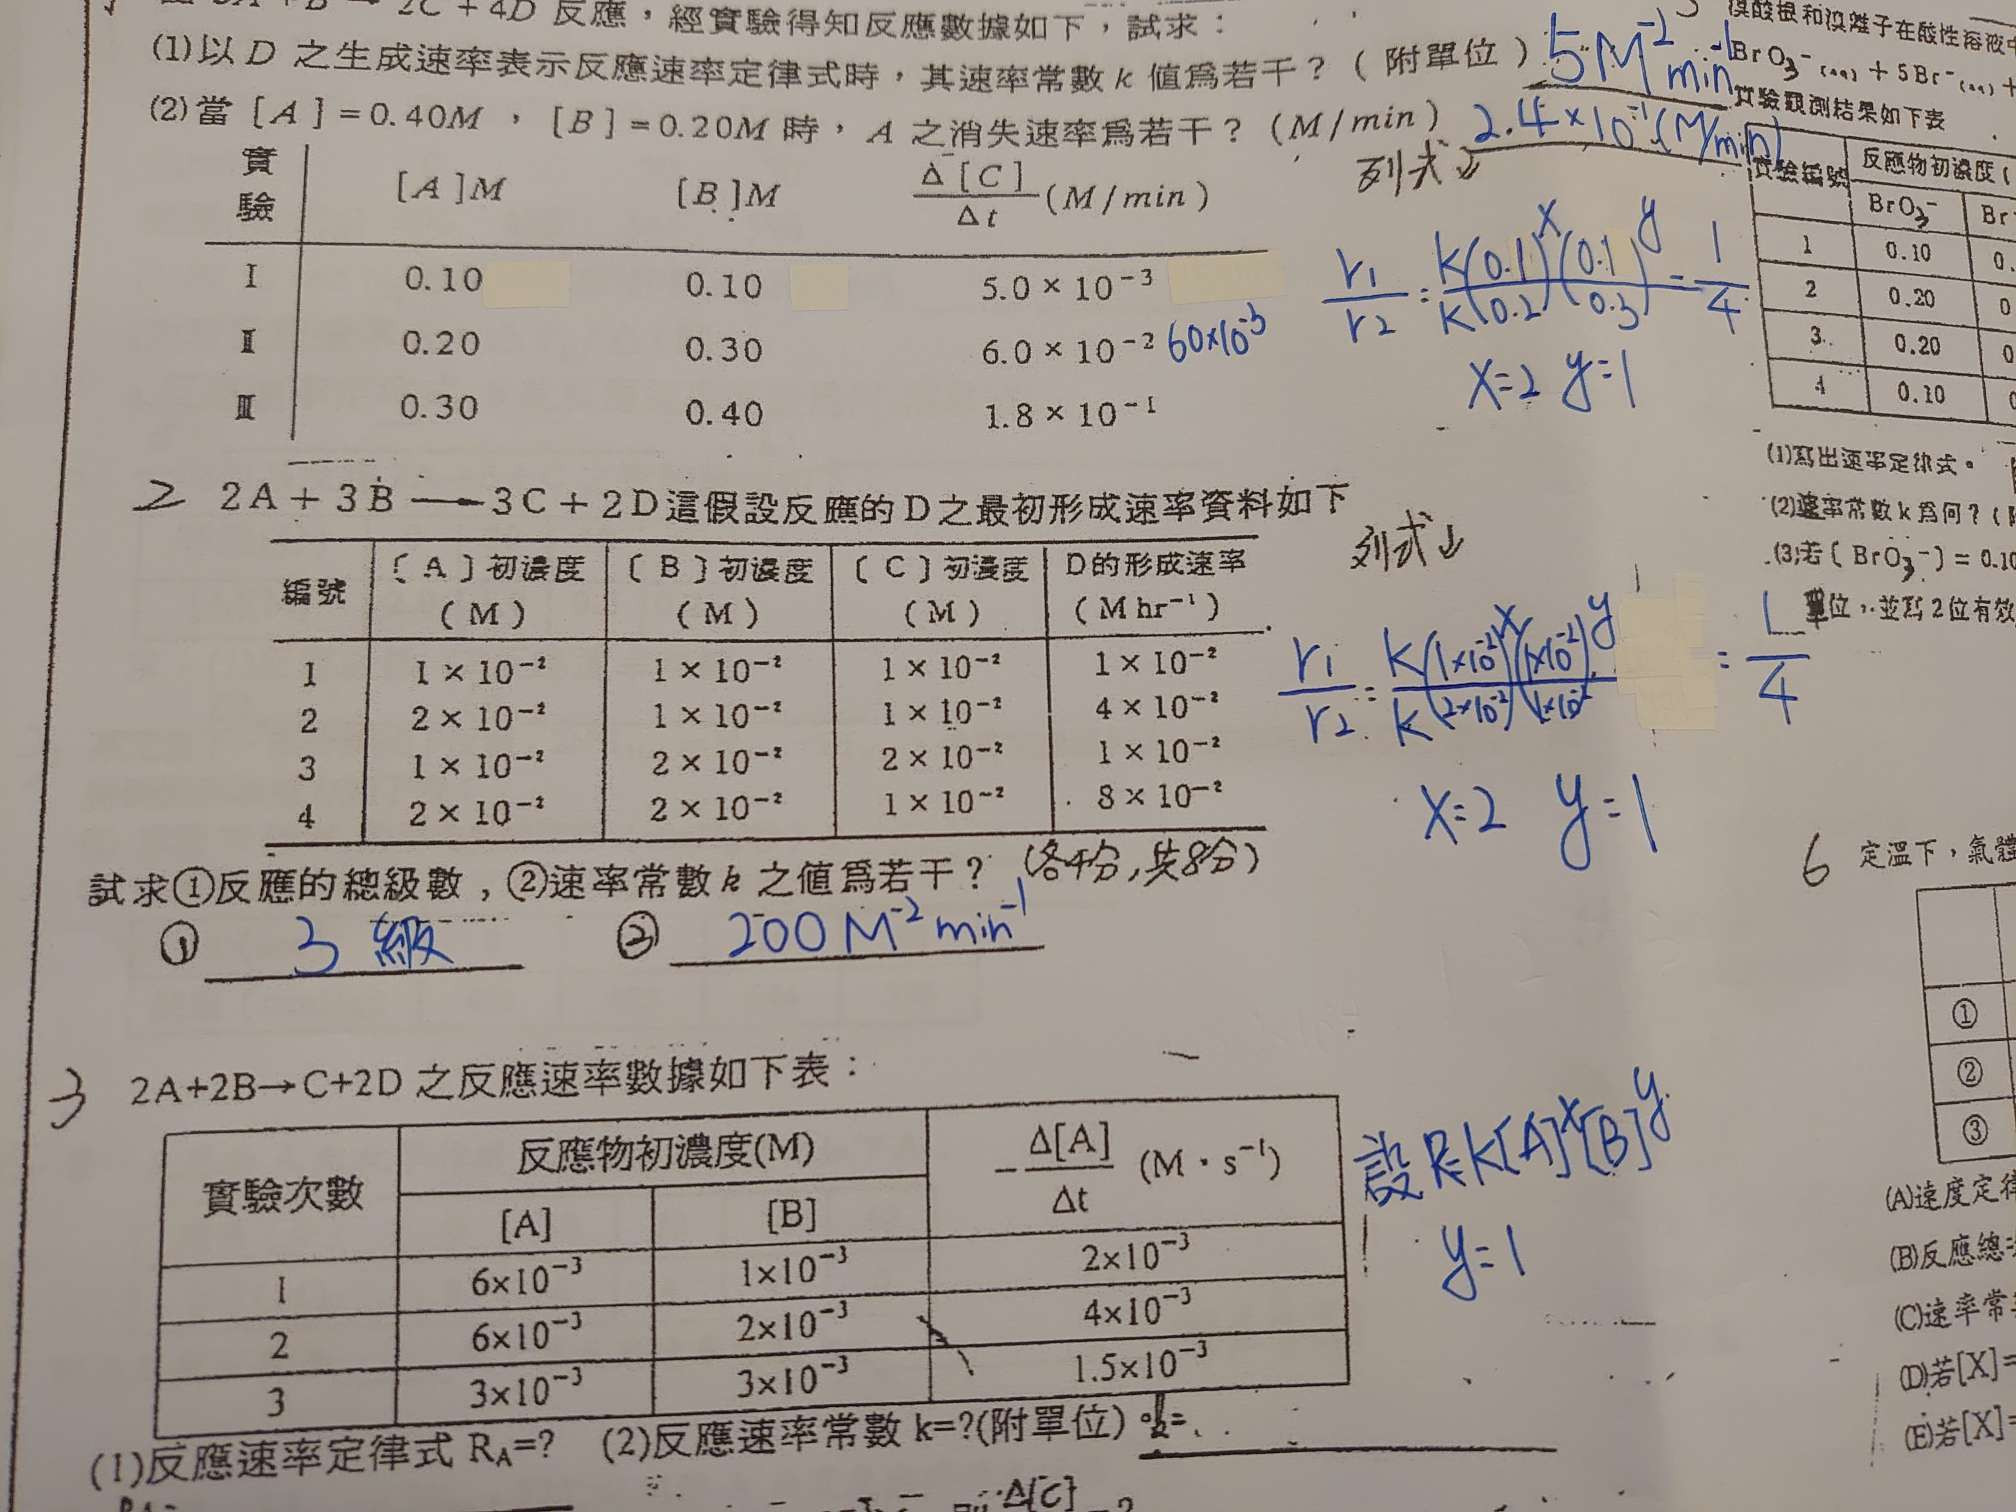 2C + 4D 反應，經實驗得知反應數據如下，試求：
(1)以 D 之生成速率表示反應速率定律式時，其速率常數 k 值爲若干？（附單位） 5 M⁻² min⁻¹
(2)當 [A]=0.40M，[B]=0.20M 時，A 之消失速率爲若干？(M/min) 2.4×10⁻¹(M/min)
實驗 [A]M [B]M Δ[C]/Δt (M/min)
列式↓
I 0.10 0.10 5.0×10⁻³
II 0.20 0.30 6.0×10⁻² 60×10⁻³
III 0.30 0.40 1.8×10⁻¹
r₁/r₂ = K(0.1)ˣ(0.1)ʸ/K(0.2)(0.3) = 1/4
x=2 y=1
2 2A + 3B → 3C + 2D 這假設反應的 D 之最初形成速率資料如下
列式↓
編號 〔A〕初濃度（M） 〔B〕初濃度（M） 〔C〕初濃度（M） D的形成速率（M hr⁻¹）
1 1×10⁻² 1×10⁻² 1×10⁻² 1×10⁻²
2 2×10⁻² 1×10⁻² 1×10⁻² 4×10⁻²
3 1×10⁻² 2×10⁻² 2×10⁻² 1×10⁻²
4 2×10⁻² 2×10⁻² 1×10⁻² 8×10⁻²
r₁/r₂ = K(1×10⁻²)ˣ(1×10⁻²)ʸ/K(2×10⁻²)(1×10⁻²) = 1/4
x=2 y=1
試求①反應的總級數，②速率常數 k 之值爲若干？（各4分，共8分）
① 3 級 ② 200 M⁻² min⁻¹
3 2A+2B→C+2D 之反應速率數據如下表：
實驗次數 反應物初濃度(M) -Δ[A]/Δt (M·s⁻¹)
[A] [B]
1 6×10⁻³ 1×10⁻³ 2×10⁻³
2 6×10⁻³ 2×10⁻³ 4×10⁻³
3 3×10⁻³ 3×10⁻³ 1.5×10⁻³
設 R=K[A]ˣ[B]ʸ
y=1
(1)反應速率定律式 R_A=? (2)反應速率常數 k=?(附單位)。
Δ[C]
溴酸根和溴離子在酸性溶液中
BrO₃⁻(aq) + 5Br⁻(aq) +
實驗觀測結果如下表
實驗編號 反應物初濃度(
BrO₃⁻ Br
1 0.10 0.
2 0.20 0
3 0.20 0
4 0.10 0
(1)寫出速率定律式。
(2)速率常數 k 爲何？(
(3)若〔BrO₃⁻〕= 0.10
單位，並寫 2 位有效
6 定溫下，氣體
①
②
③
(A)速度定律
(B)反應總
(C)速率常
(D)若[X]=
(E)若[X]=